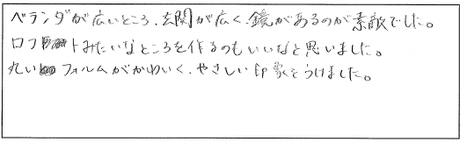 ベランダが広いところ、玄関が広く、鏡があるのが素敵でした。
ロフトみたいなところを作るのもいいなと思いました。
丸いフォルムがかわいく、やさしい印象をうけました。